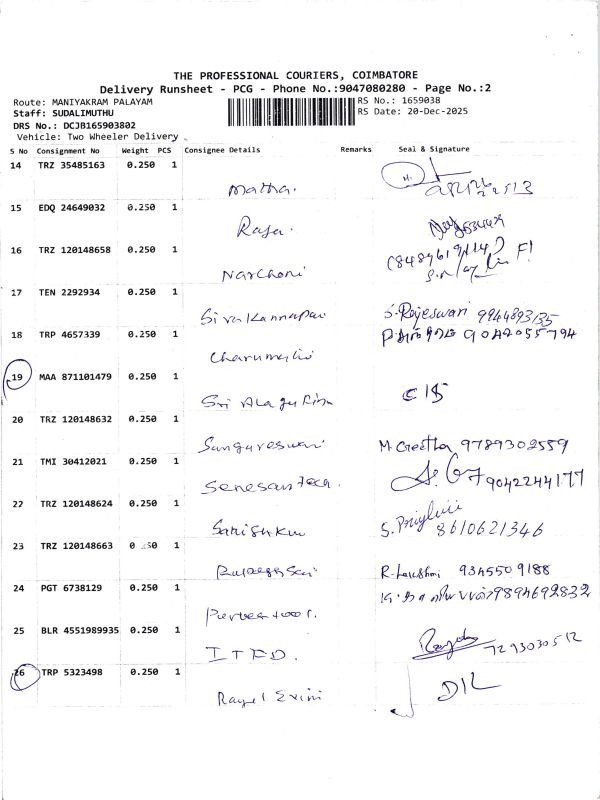 THE PROFESSIONAL COURIERS, COIMBATORE
Delivery Runsheet - PCG - Phone No.:9047080280 - Page No.:2
Route: MANIYAKRAM PALAYAM RS No.: 1659038
Staff: SUDALIMUTHU RS Date: 20-Dec-2025
DRS No.: DCJB165903802
Vehicle: Two Wheeler Delivery
S No Consignment No Weight PCS Consignee Details Remarks Seal & Signature
14 TRZ 35485163 0.250 1
Matha.
15 EDQ 24649032 0.250 1
Raja.
16 TRZ 120148658 0.250 1
Narchoni
17 TEN 2292934 0.250 1
Sivakannapan S. Rajeswari 9944893135
18 TRP 4657339 0.250 1 9042055794
19 MAA 871101479 0.250 1
Sri
20 TRZ 120148632 0.250 1
Sangareswari M. Geetha 9789302559
21 TMI 30412021 0.250 1
9042244177
22 TRZ 120148624 0.250 1
Satish S. 8610621346
23 TRZ 120148663 0.250 1
R. Lakshmi 9345509188
24 PGT 6738129 0.250 1 9894692832
25 BLR 4551989935 0.250 1
ITFD. 7293030512
26 TRP 5323498 0.250 1
DIL